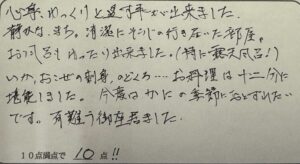 心身、ゆっくりと過す事が出来ました。
静かなまち。清潔にそうじの行き届いた部屋。
お風呂もゆったり出来ました。(特に露天風呂!)
いか、おこぜの刺身、のどぐろ… お料理は十二分に
堪能しました。今度はかにの季節におとずれたい
です。有難う御座居ました。
10点満点で 10 点!!